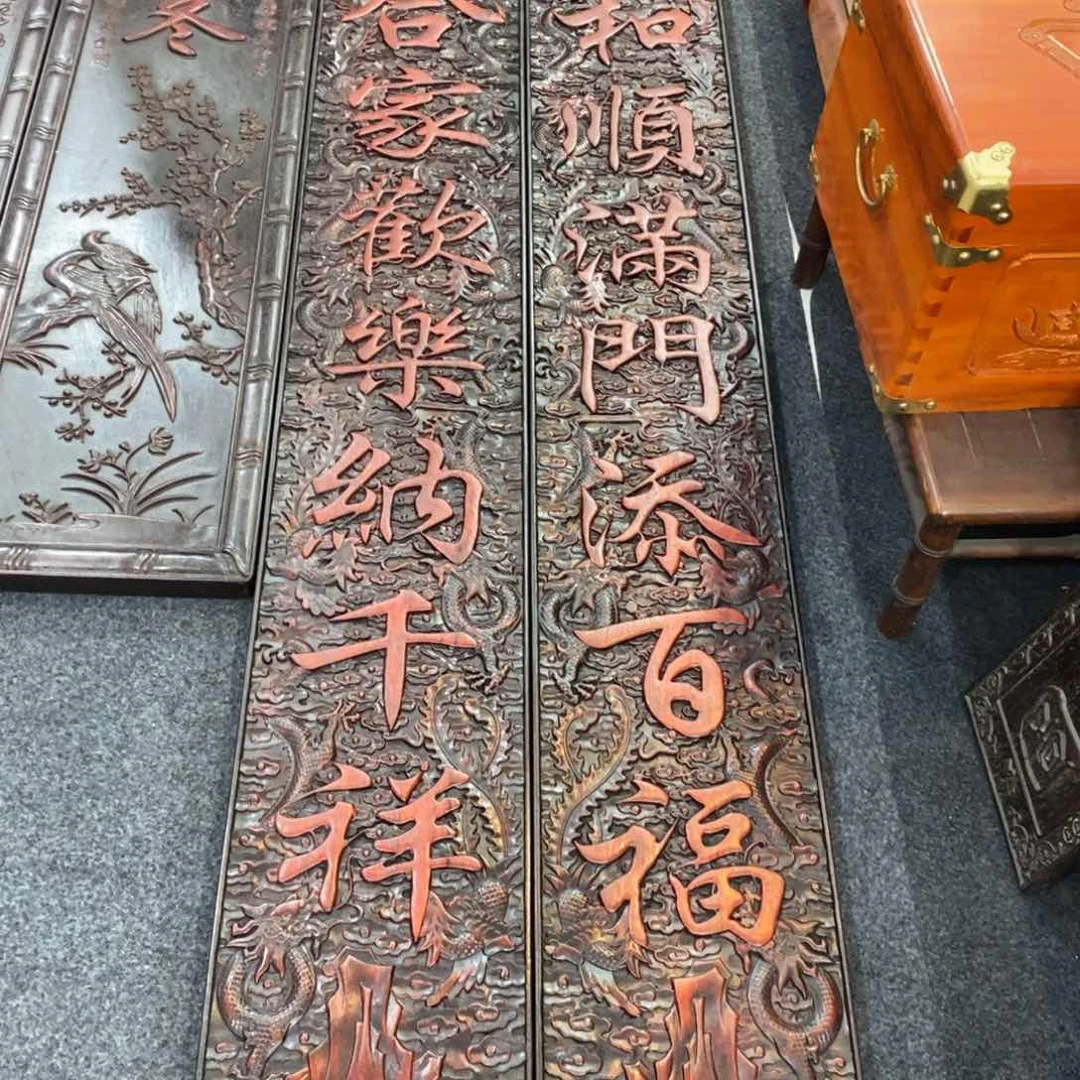 和順滿門添百福
合家歡樂納千祥
冬